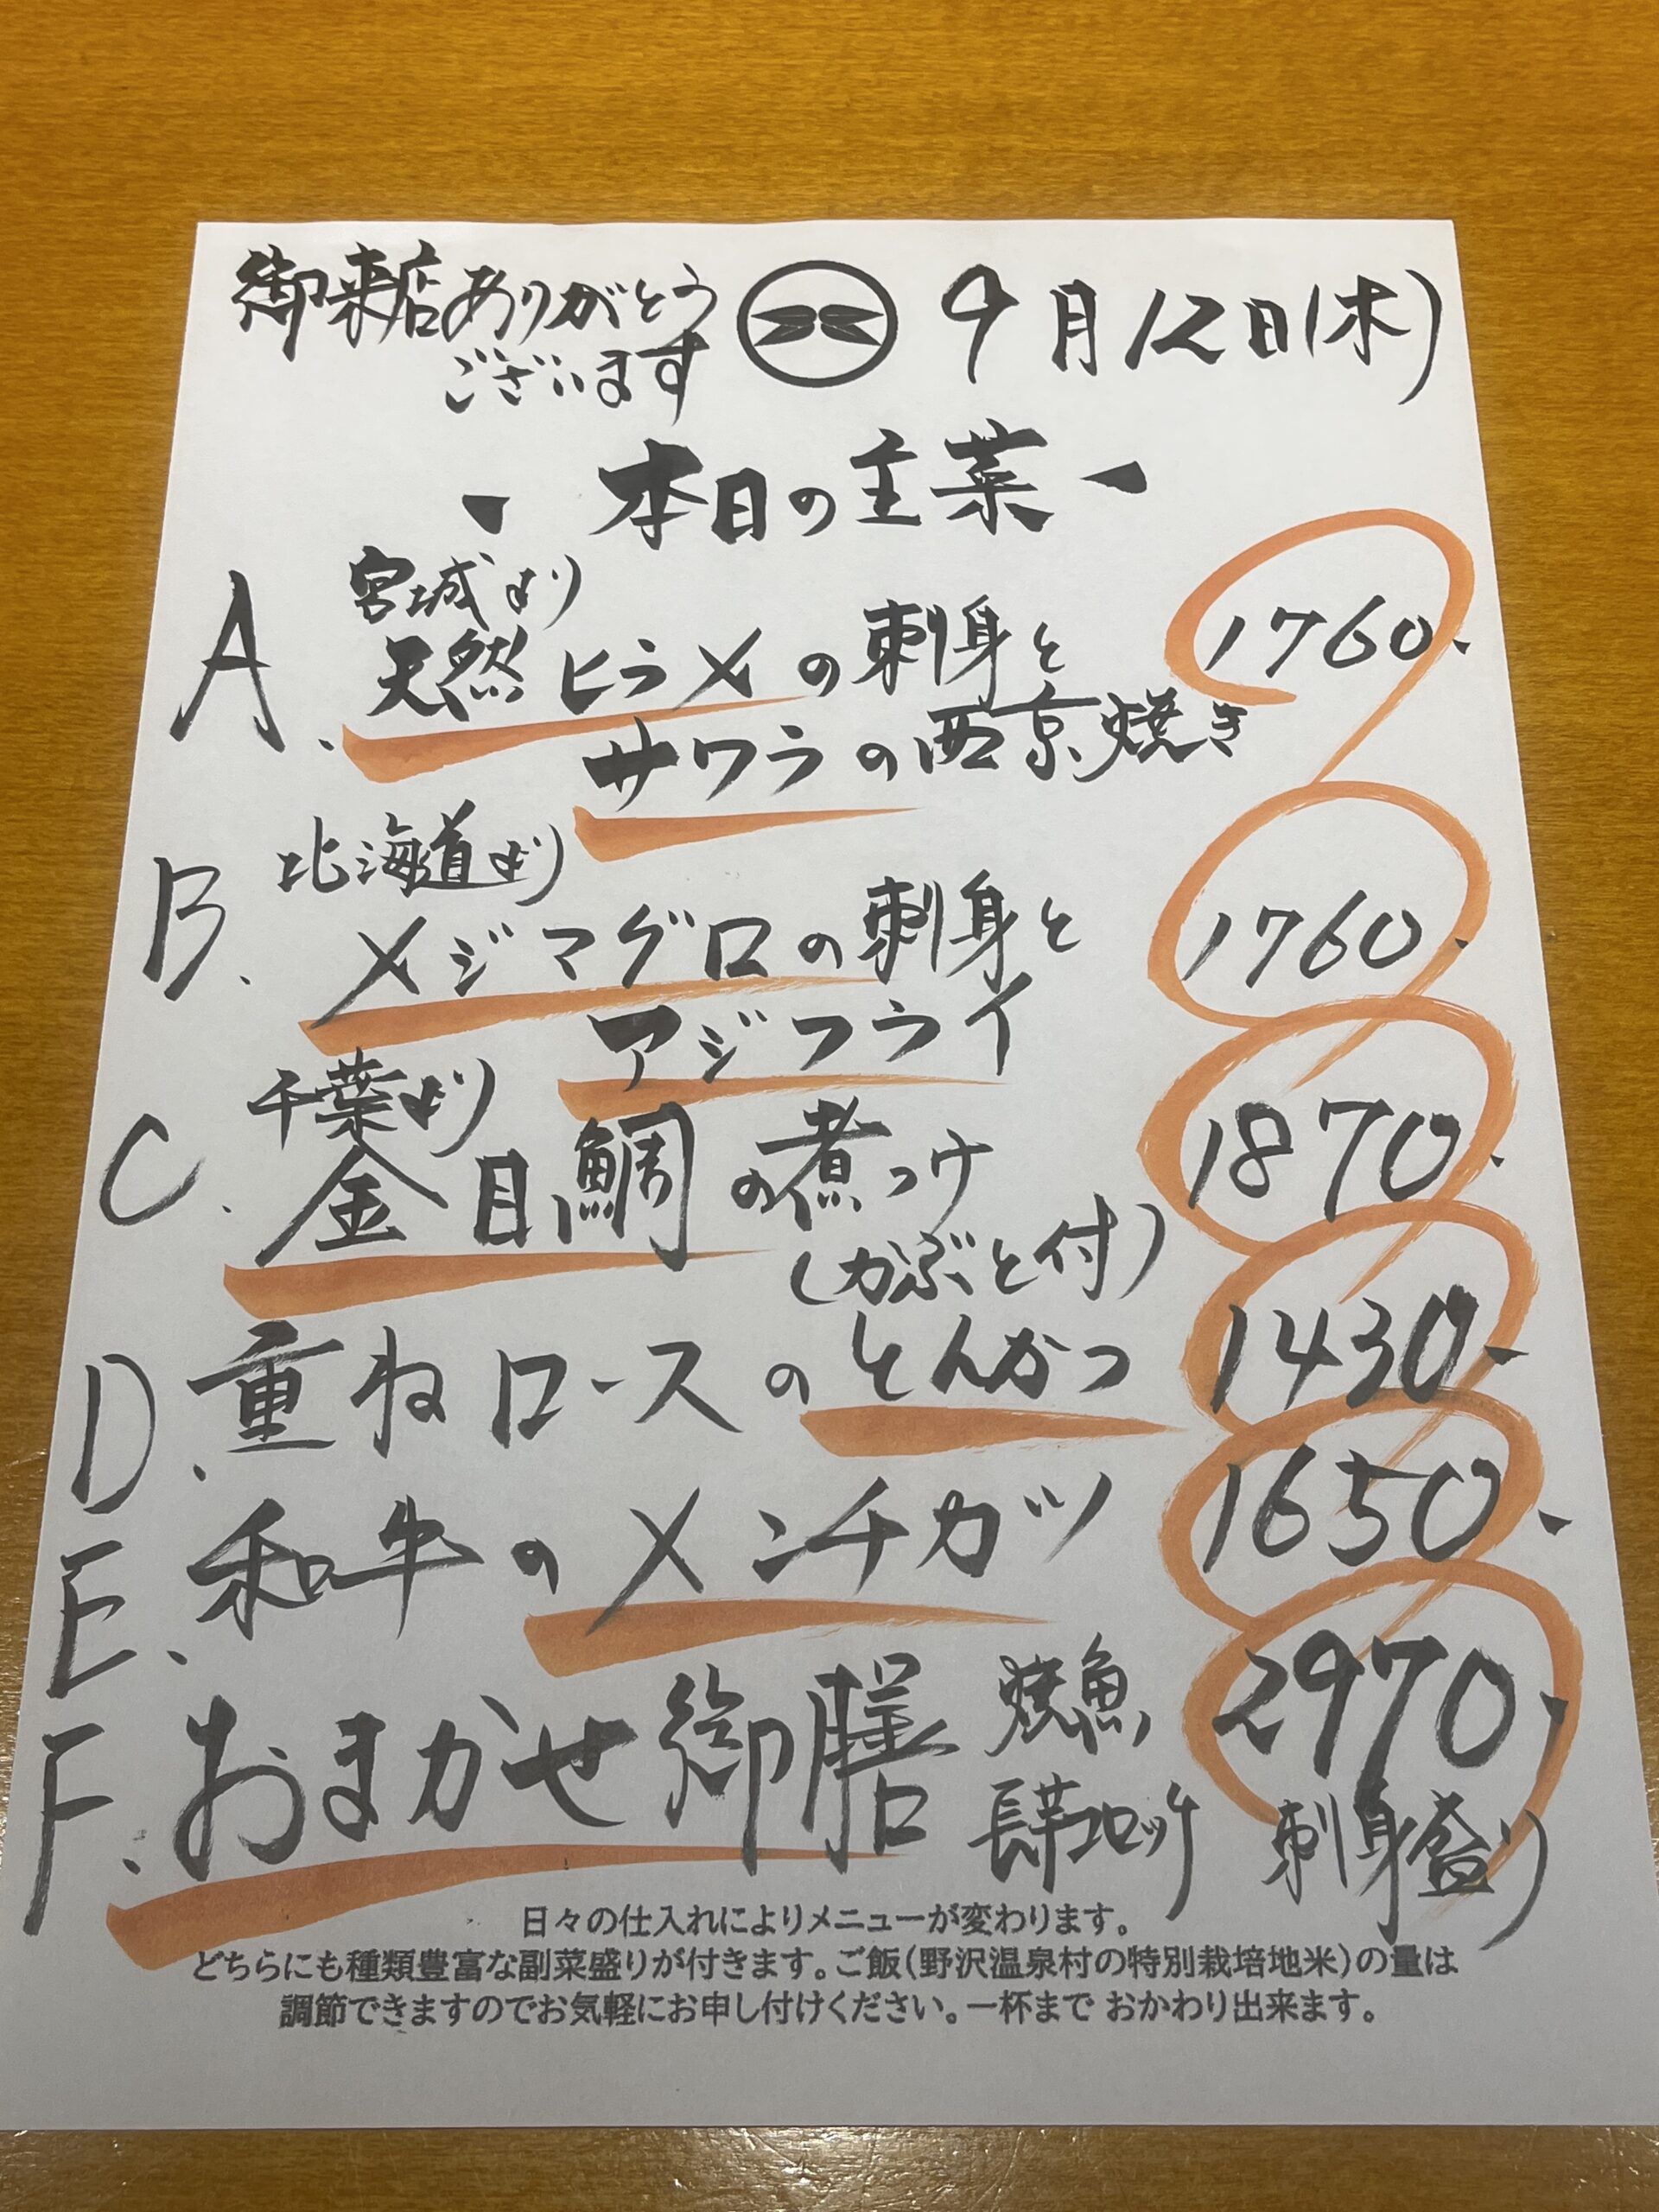 御来店ありがとう
ございます
9月12日(木)
- 本日の主菜 -
A. 宮城より
天然ヒラメの刺身と
サワラの西京焼き
1760.
B. 北海道より
メジマグロの刺身と
アジフライ
1760.
C. 千葉より
金目鯛の煮つけ
(かぶと付)
1870.
D. 重ねロースのとんかつ 1430.
E. 和牛のメンチカツ 1650.
F. おまかせ御膳 2970.
焼魚
長芋コロッケ 刺身盛り
日々の仕入れによりメニューが変わります。
どちらにも種類豊富な副菜盛りが付きます。ご飯(野沢温泉村の特別栽培地米)の量は
調節できますのでお気軽にお申し付けください。一杯まで おかわり出来ます。